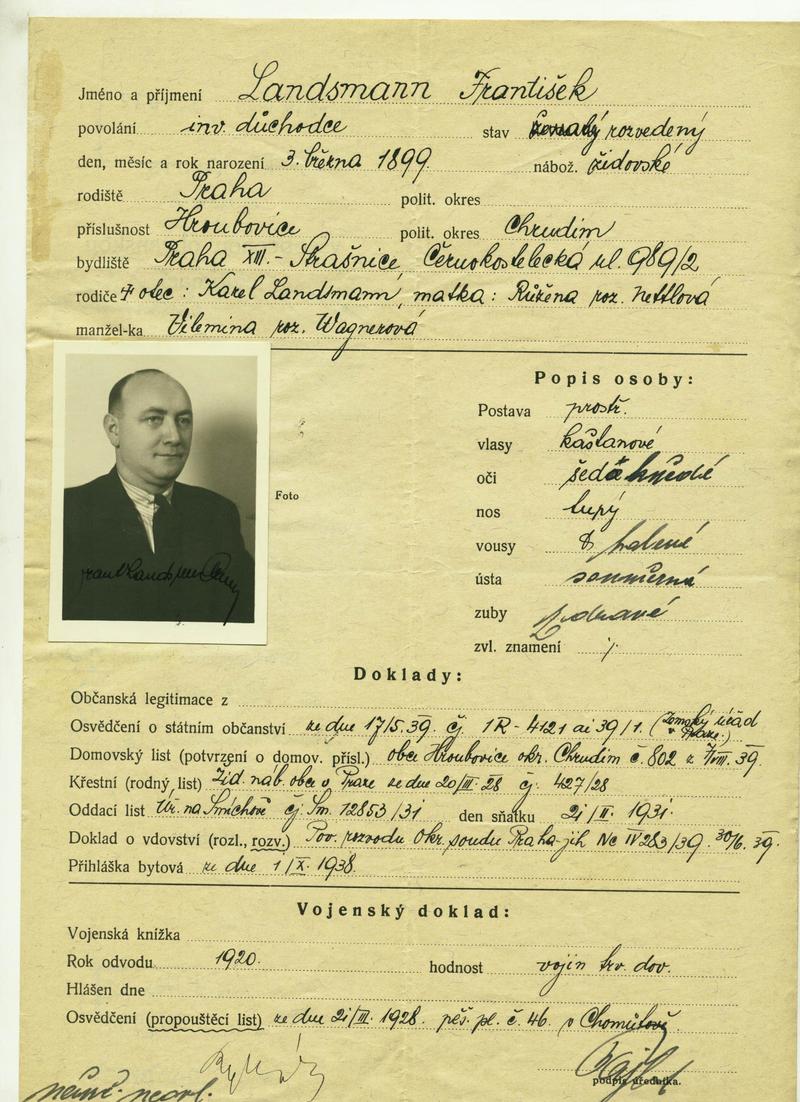 Jméno a příjmení Landsmann František
povolání inv. důchodce stav ženatý rozvedený
den, měsíc a rok narození 3. března 1899 nábož. židovské
rodiště Praha polit. okres
příslušnost Hroubovice polit. okres Chrudim
bydliště Praha XIII. - Strašnice, Černokostelecká ul. 989/2
rodiče otec: Karel Landsmann, matka: Růžena roz. Nettlová
manžel-ka Vilemína roz. Wagnerová
Popis osoby:
Postava prostř.
vlasy kaštanové
oči hnědé
Foto
nos tupý
vousy holené
ústa souměrná
zuby zdravé
zvl. znamení
Doklady:
Občanská legitimace z
Osvědčení o státním občanství ze dne 17/5. 39. čj. 1R - 4121 ai 39/1. (Zemský úřad
v Praze.)
Domovský list (potvrzení o domov. přísl.) obce Hroubovice okr. Chrudim č. 802 z VIII. 39.
Křestní (rodný list) Žid. náb. obce v Praze ze dne 20/III. 28 čj. 427/28
Oddací list na Smíchově čj. Sm. 12853/31 den sňatku 21/II. 1931.
Doklad o vdovství (rozl., rozv.) Pov. rozvodu okr. soudu Praha-jih Nc IV 283/39. 30/6. 39.
Přihláška bytová ze dne 1/X. 1938.
Vojenský doklad:
Vojenská knížka
Rok odvodu 1920. hodnost vojín trv. dov.
Hlášen dne
Osvědčení (propouštěcí list) ze dne 21/III. 1928. pěš. pl. č. 46. v Chomutově
podpis úředníka.